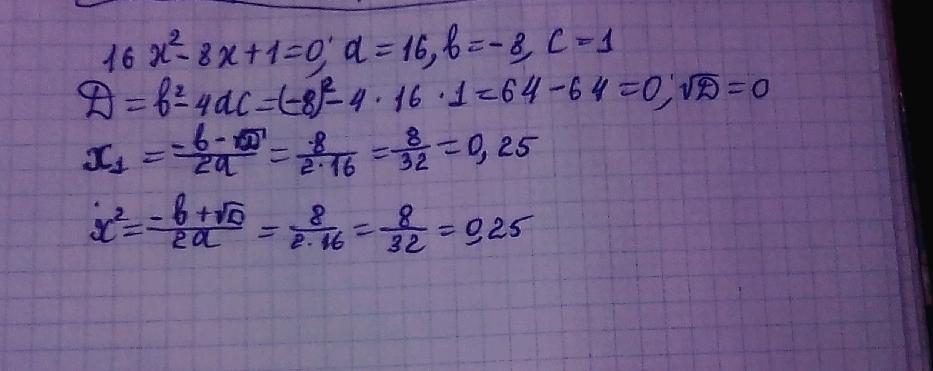 16x² - 8x + 1 = 0; a = 16, b = -8, c = 1
D = b² - 4ac = (-8)² - 4 · 16 · 1 = 64 - 64 = 0; √D = 0
x₁ = (-b - √D)/(2a) = 8/(2·16) = 8/32 = 0,25
x² = (-b + √D)/(2a) = 8/(2·16) = 8/32 = 0,25